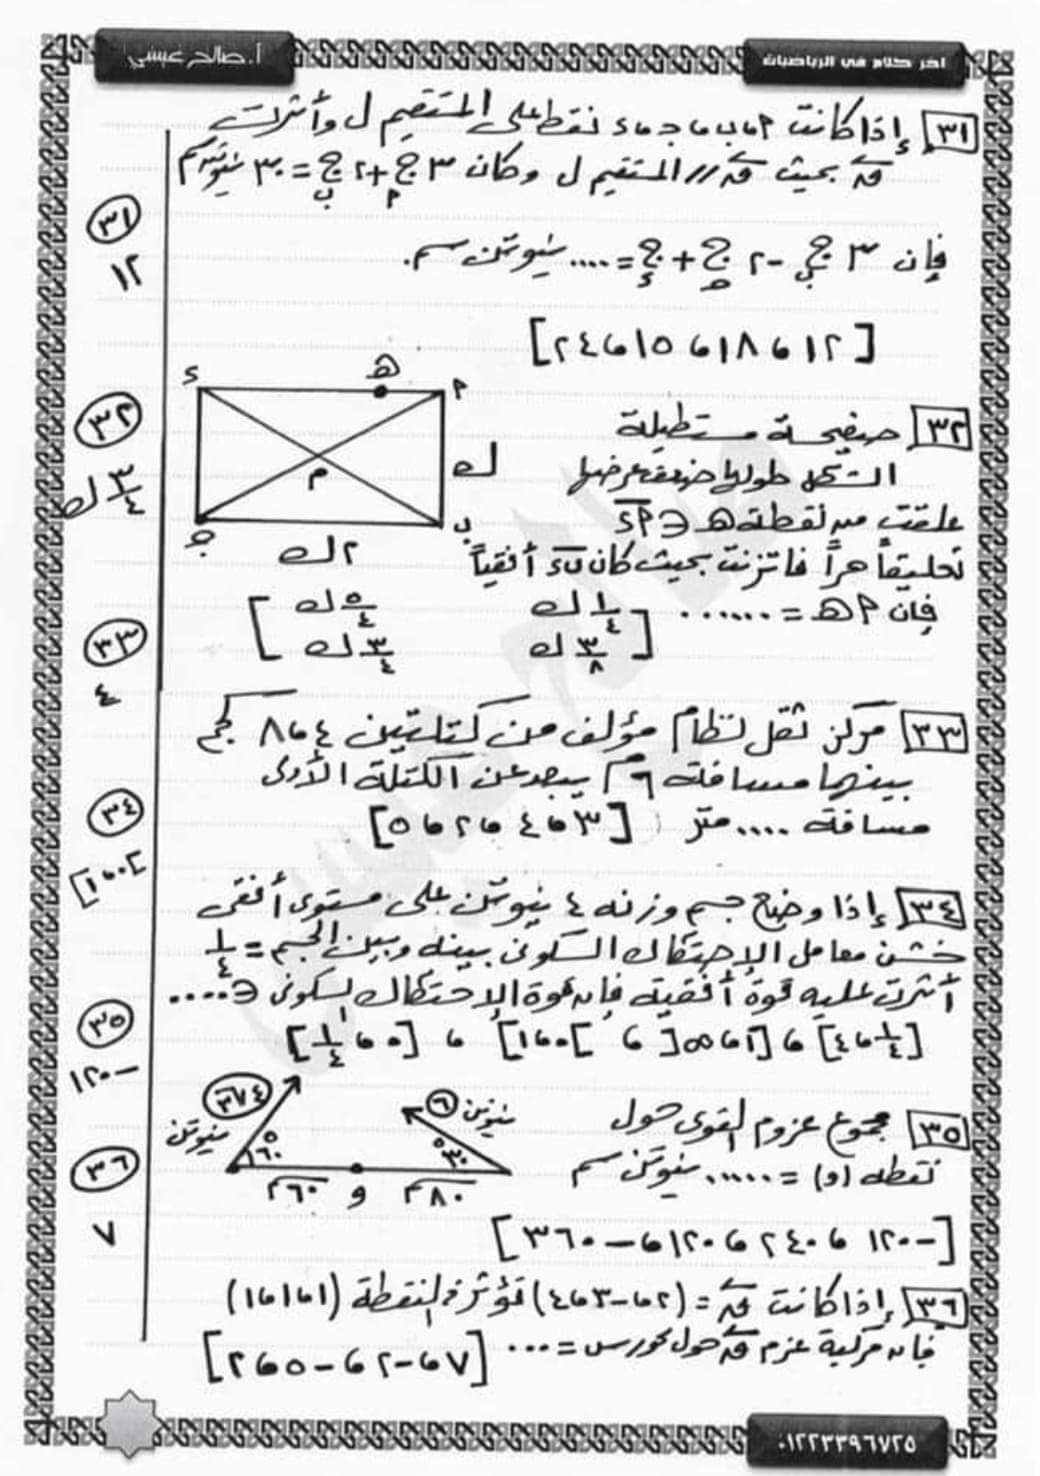 أ. صالح عيسى
آخر كلام في الرياضيات
٣١ إذا كانت ٢، ب، جـ، ء نقط على المستقيم ل وأثرت
ق بحيث ق // المستقيم ل وكان ٣ ج٢ + ٢ جب = ٣٠ نيوتن.سم
فإن ٣ جب - ٢ جـ + جء = .... نيوتن سم.
[١٢ ، ١٨ ، ١٥ ، ٢٤]
٣١
١٢
٣٢ صفيحة مستطيلة
الشكل طولها ضعف عرضها
علقت من نقطة هـ ∈ ٢ء
تعليقاً حراً فاتزنت بحيث كان بء أفقياً
فإن ٢هـ = .......
[١/٤ ل ٥/٤ ل
٣/٨ ل ٣/٤ ل]
ء هـ ٢
ل
م
جـ ب
٢ل
٣٢
٣/٤ ل
٣٣ مركز ثقل نظام مؤلف من كتلتين ٤ ، ٨ كجم
بينهما مسافة ٦م يبعد عن الكتلة الأولى
مسافة .... متر [٣ ، ٤ ، ٢ ، ٥]
٣٣
٤
٣٤ إذا وضع جسم وزنه ٤ نيوتن على مستوى أفقى
خشن معامل الإحتكاك السكونى بينه وبين الجسم = ١/٤
أثرت عليه قوة أفقية فإن قوة الإحتكاك السكونى ∈ ....
[١/٤ ، ٤] ، [١ ، ∞[ ، ]٠ ، ١] ، [٠ ، ١/٤]
٣٤
]٠ ، ١]
٣٥ مجموع عزوم القوى حول
نقطة (و) = ...... نيوتن سم
[-١٢٠ ، ٢٤٠ ، ١٢٠ ، -٣٦٠]
٤√٣ نيوتن
٦ نيوتن
٦٠° ٣٠°
٦٠سم و ٨٠سم
٣٥
-١٢٠
٣٦ إذا كانت ق = (٢، -٣، ٤) تؤثر فى النقطة (١، ١، ١)
فإن مركبة عزم ق حول محور س = ...
[٧ ، -٢ ، -٥ ، ٢]
٣٦
٧
٠١٢٢٣٣٩٦٧٢٥